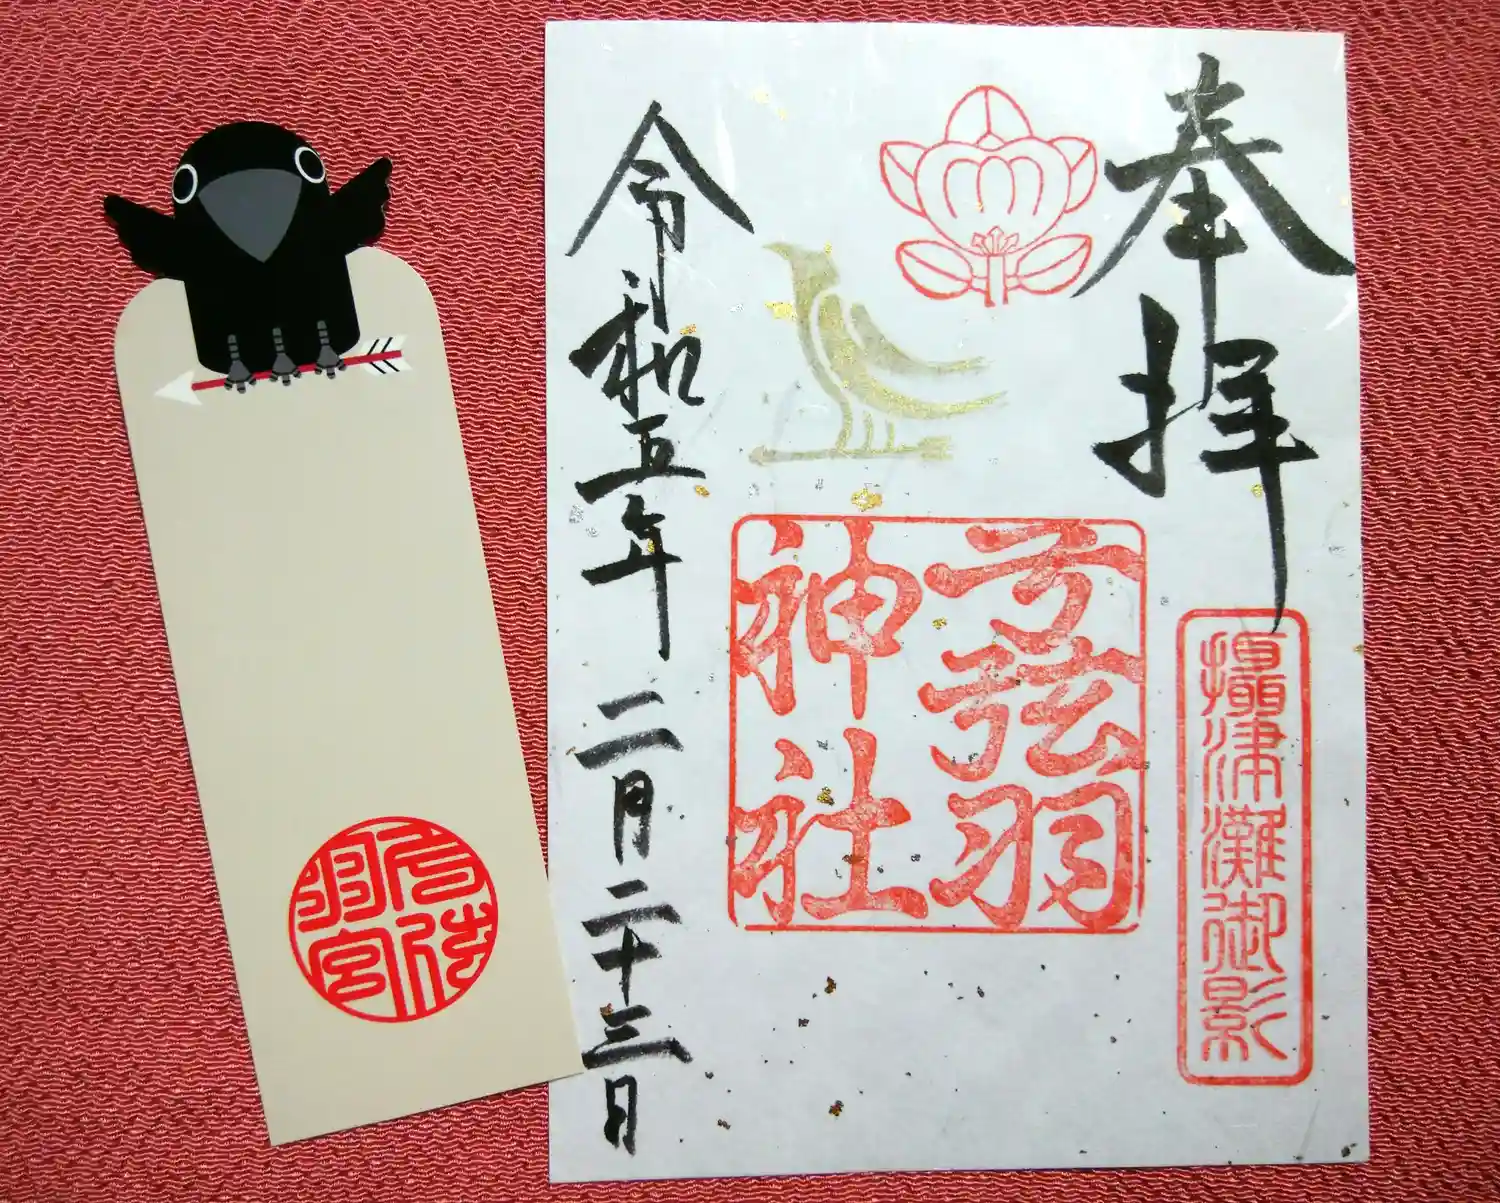 奉拝
攝津灘御影
弓弦羽
神社
令和五年 二月二十三日
弓弦
羽宮